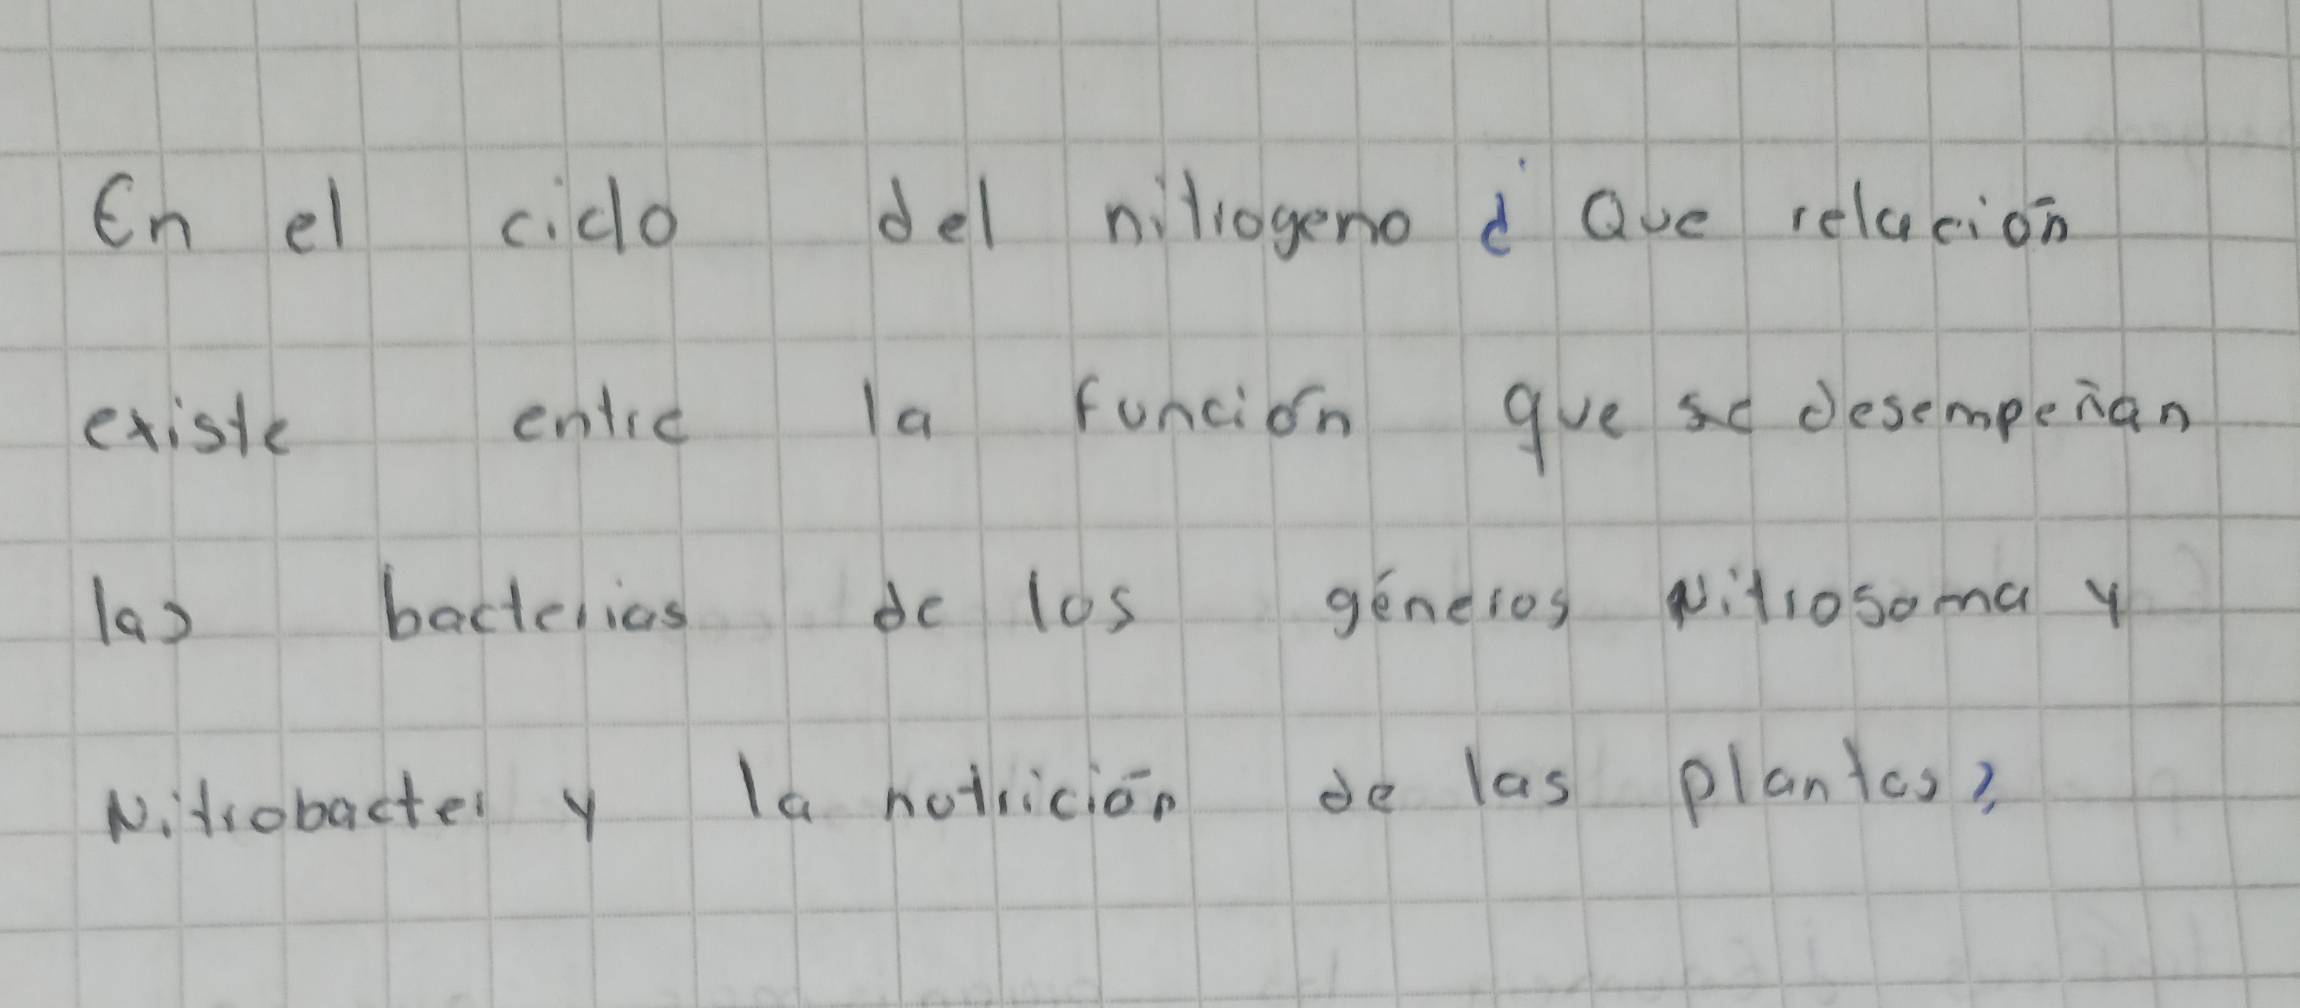 En el ciclo del nitrogeno ¿ Que relación
existe entre la función que se desempeñan
las bacterias de los géneros Nitrosoma y
Nitrobacter y la nutrición de las plantas?